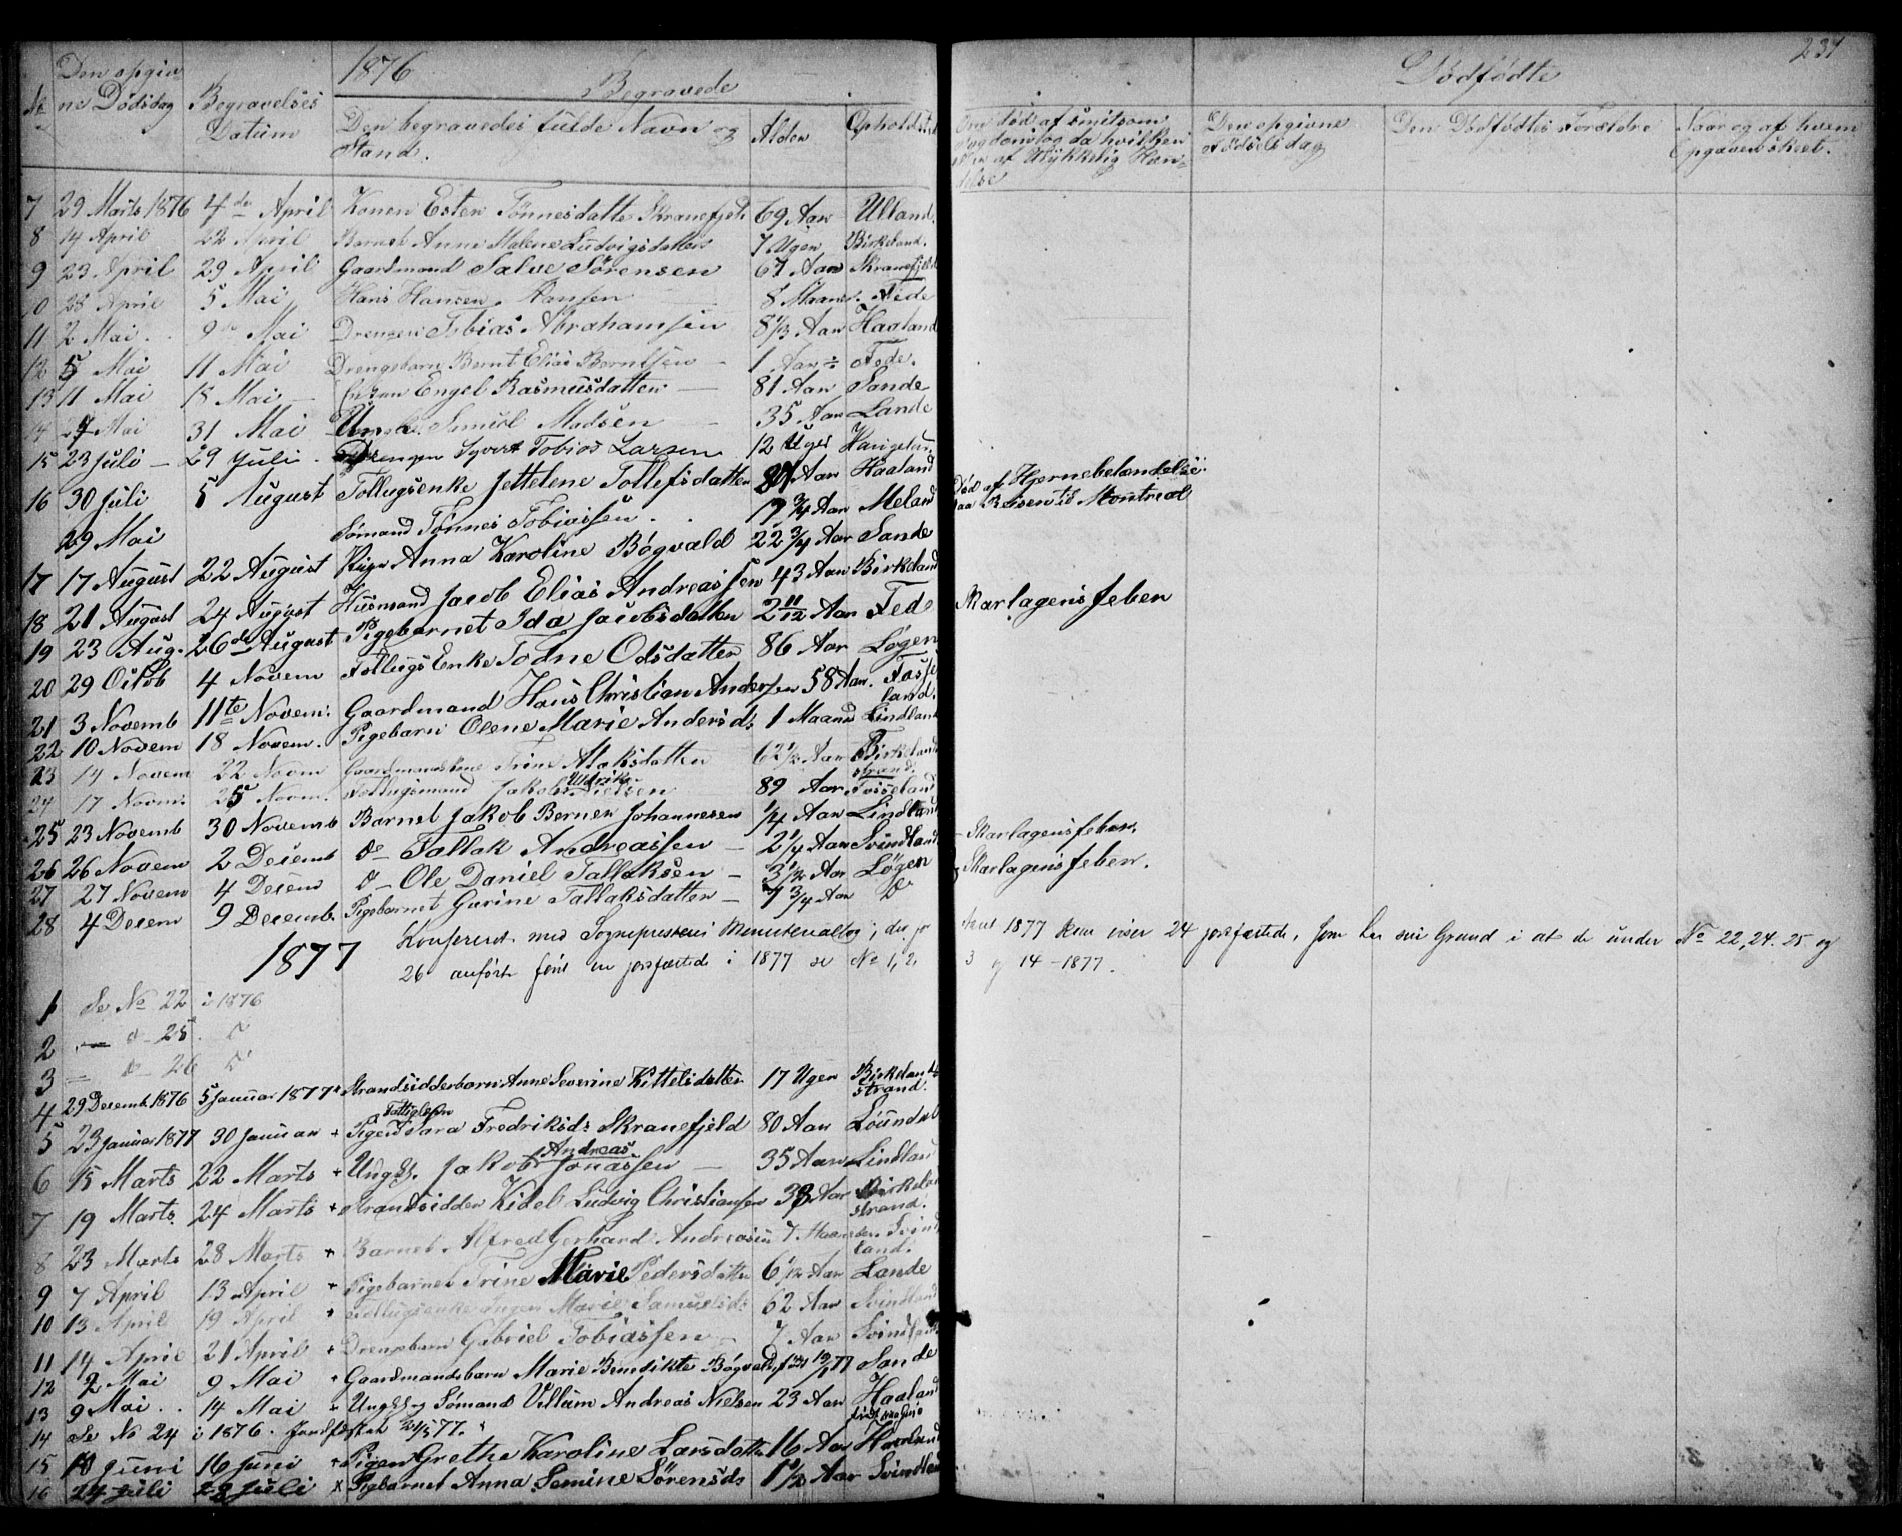 1876
Begravede
Dødfødte
237
No
Den opgivne Dødsdag
Begravelses Datum
Den begravedes fulde Navn og Stand.
Alder
Opholdsted
Om død af smitsom Sygdom og da hvilken eller af Ulykkelig Hændelse
Den opgivne Fødselsdag
Den Dødfødtes Forældre
Naar og af hvem Opgaven skeet.
7 29 Marts 1876 4de April Konen Ester Tønnesdatter Skranefjeld 69 Aar Ulland
8 14 April 22 April Barnet Anne Malene Ludvigsdatter 7 Uger Birkeland.
9 23 April 29 April Gaardmand Salve Sørensen 67 Aar Skranefjeld
10 28 April 5 Mai Hans Hansen Hansen 8 Maaned. Fede
11 2 Mai 9de Mai Drengen Tobias Abrahamsen 8 1/3 Aar Haaland
12 5 Mai 11 Mai Drengebarn Bernt Elias Berntsen 1 Aar Fede.
13 11 Mai 18 Mai Enken Engel Rasmusdatter 81 Aar Sande
14 Mai 31 Mai Samuel Madsen 35 Aar Lande
15 23 Juli 29 Juli Drengen Syvert Tobias Larsen 12 Uger Haugeland
16 30 Juli 5 August Follugsenke Jettelene Tollefsdatter Aar Haaland
29 Mai Sømand Tønnes Tobiassen 19 3/4 Aar Meland Død af Hjernebetændelse paa Reisen til Montreal
17 17 August 22 August Pige Anna Karoline Bøgvald 22 3/4 Aar Sande
18 21 August 24 August Husmand Jacob Elias Andreassen 43 Aar Birkeland
19 23 Aug. 26de August Pigebarnet Ida Jacobsdatter 2 11/12 Aar Fede Skarlagensfeber
20 29 Octob 4 Novem Follugs Enke Todne Odsdatter 86 Aar Løgen
21 3 Novemb 11te Novem. Gaardmand Hans Christian Andersen 58 Aar. Fosseland.
22 10 Novem 18 Novem. Pigebarn Olene Marie Andersd. 1 Maaned Lindland
23 14 Novem 22 Novm Gaardmandskone Trine Aslaksdatter 62 1/2 Aar Birkelandsstrand.
24 17 Novm. 25 Novm. Follugsmand Jakob Uldrik Nielsen 89 Aar Fosseland
25 23 Novemb 30 Novemb Barnet Jakob Berner Johannesen 1/4 Aar Lindland
26 26 Novem 2 Decemb do Tallak Andreassen 2 1/4 Aar Svindland Skarlagensfeber.
27 27 Novem 4 Decem do Ole Daniel Tallaksen 3 1/2 Aar Løgen Skarlagensfeber.
28 4 Decem 9 Decemb. Pigebarnet Gurine Tallaksdatter 7 3/4 Aar do
1877
Konfereret med Sognepresten's Ministerialbog, der for Aaret 1877 kun viser 24 jordfæstede, som har sin Grund i at de under No 22, 24. 25 og
26 anførte først ere jordfæstede i 1877 se No 1, 2, 3 og 14 - 1877.
1 Se No 22 i 1876
2 — " - 25 do
3 — " - 26 do
4 29 Decemb. 1876 5 Januar 1877 Strandsidderbarn Anne Severine Kittelsdatter 17 Uger Birkelandsstrand.
5 23 Januar 1877 30 Januar + Pigen Fattiglem Sara Fredriksd. Skranefjeld 80 Aar Loundal
6 15 Marts 22 Marts + Ungk. Jakob Andreas Jonassen 35 Aar Lindland
7 19 Marts 24 Marts + Strandsidder Kidel Ludvig Christiansen 38 Aar Birkelandsstrand.
8 23 Marts 28 Marts + Barnet Alfred Gerhard Andreasen 7 Maaneder Svindland.
9 7 April 13 April + Pigebarnet Trine Marie Pedersdatter 6 1/12 Aar Lande
10 13 April 19 April + Follugsenke Inger Marie Samuelsd. 62 Aar Svindland
11 14 April 21 April + Drengebarn Gabriel Tobiassen 7 Aar Svindland
12 2 Mai 9 Mai + Gaardmandsbarn Marie Benedikte Bøgvald, født 77 Sande
13 9 Mai 14 Mai Ungk. og Sømand Villum Andreas Nielsen 23 Aar Haaland
14 Se No 24 i 1876. Jordfæstet 24/5 77.
15 10 Juni 16 Juni + Pigen Grethe Karoline Larsdatter 16 Aar Haaland
16 24 Juli 28 Juli x Pigebarnet Anna Semine Sørensd. 1 1/2 Aar Svindland